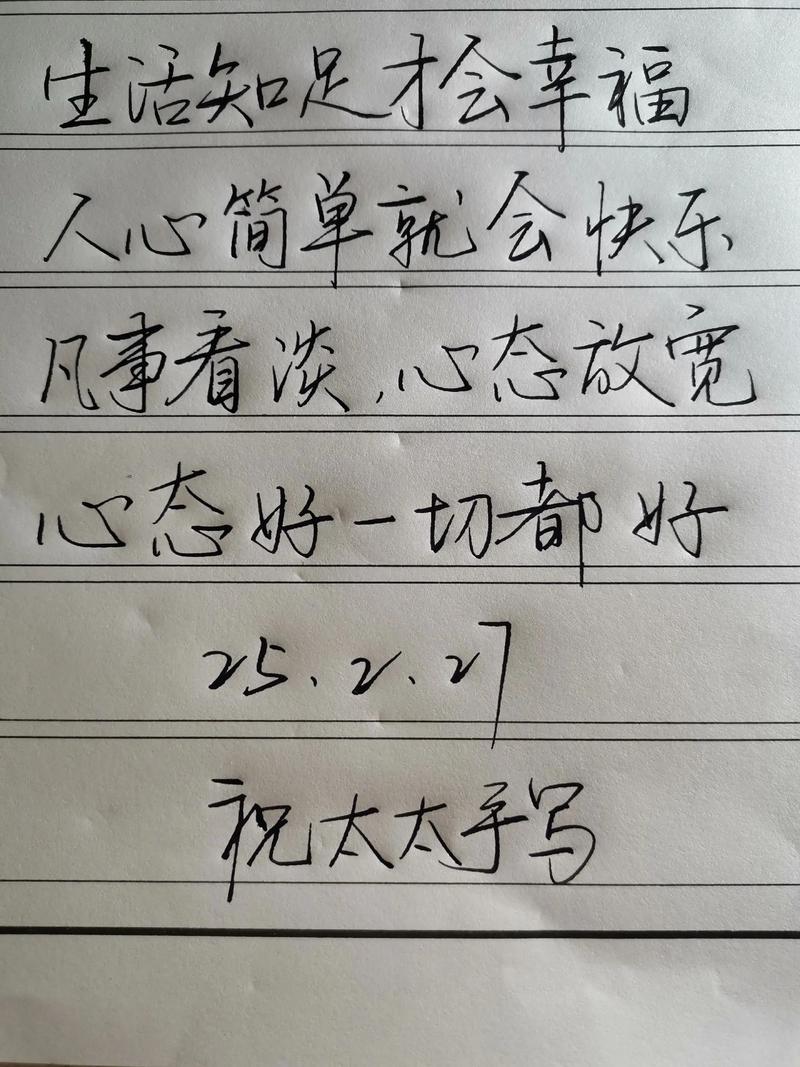 生活知足才会幸福
人心简单就会快乐
凡事看淡,心态放宽
心态好一切都好
25.2.27
祝太太手写